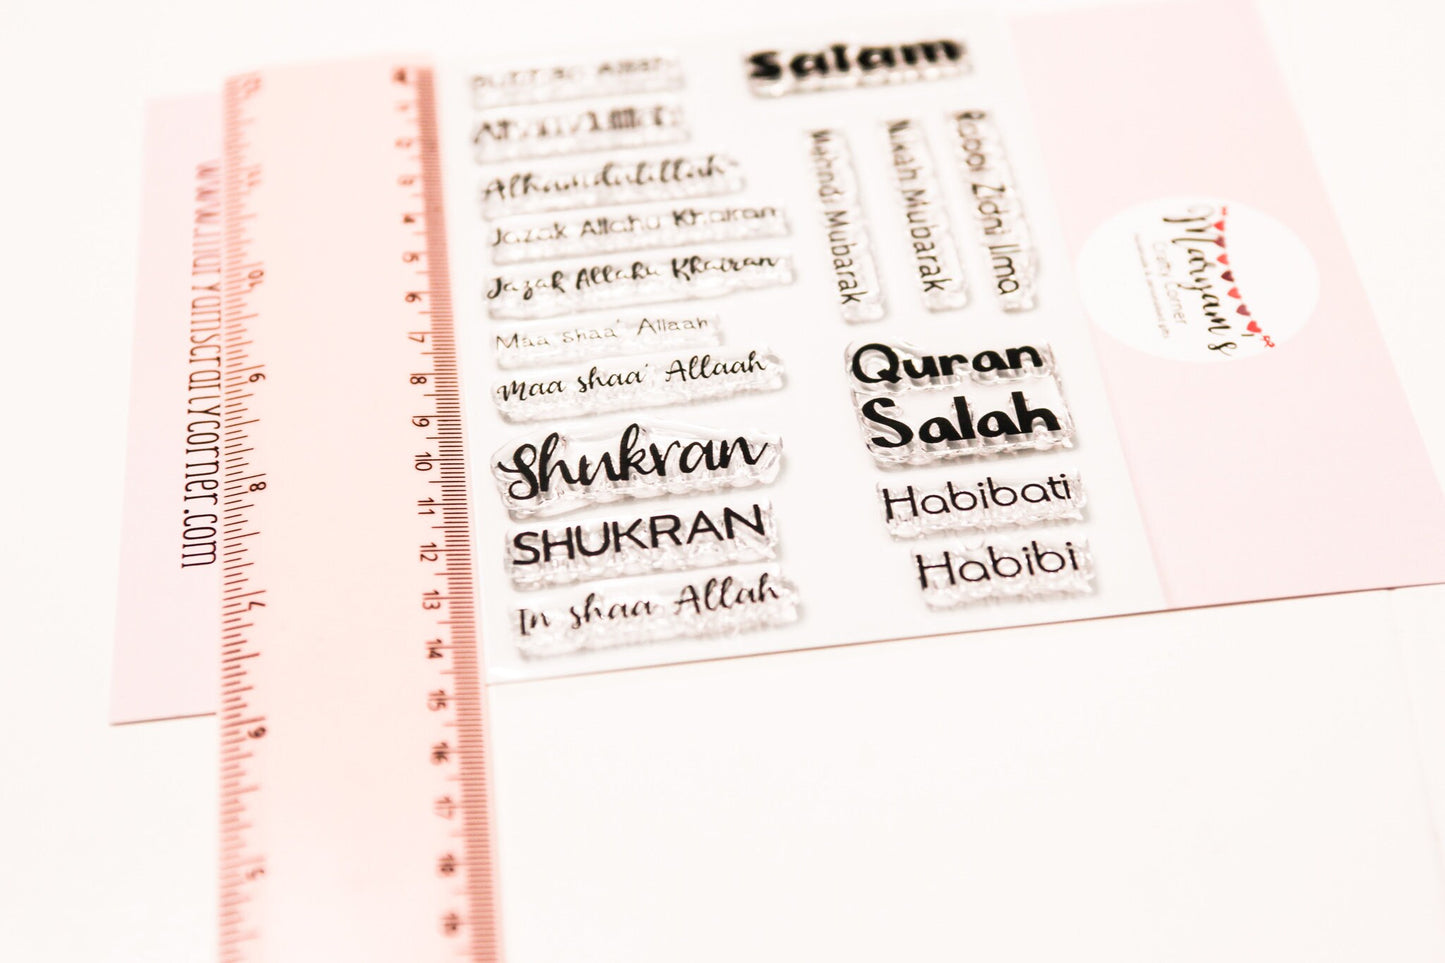 Salam
Alhamdulillah
Jazak Allahu Khairan
Jazak Allahu Khairan
Maa shaa' Allaah
Maa shaa' Allaah
Shukran
SHUKRAN
In shaa Allah
Mehndi Mubarak
Nikah Mubarak
Rabbi Zidni Ilma
Quran
Salah
Habibati
Habibi
Maryam's
Crafty Corner
www.maryamscraftycorner.com
1
2
3
4
5
6
7
8
9
10
11
12
13
14
15
16
17
18